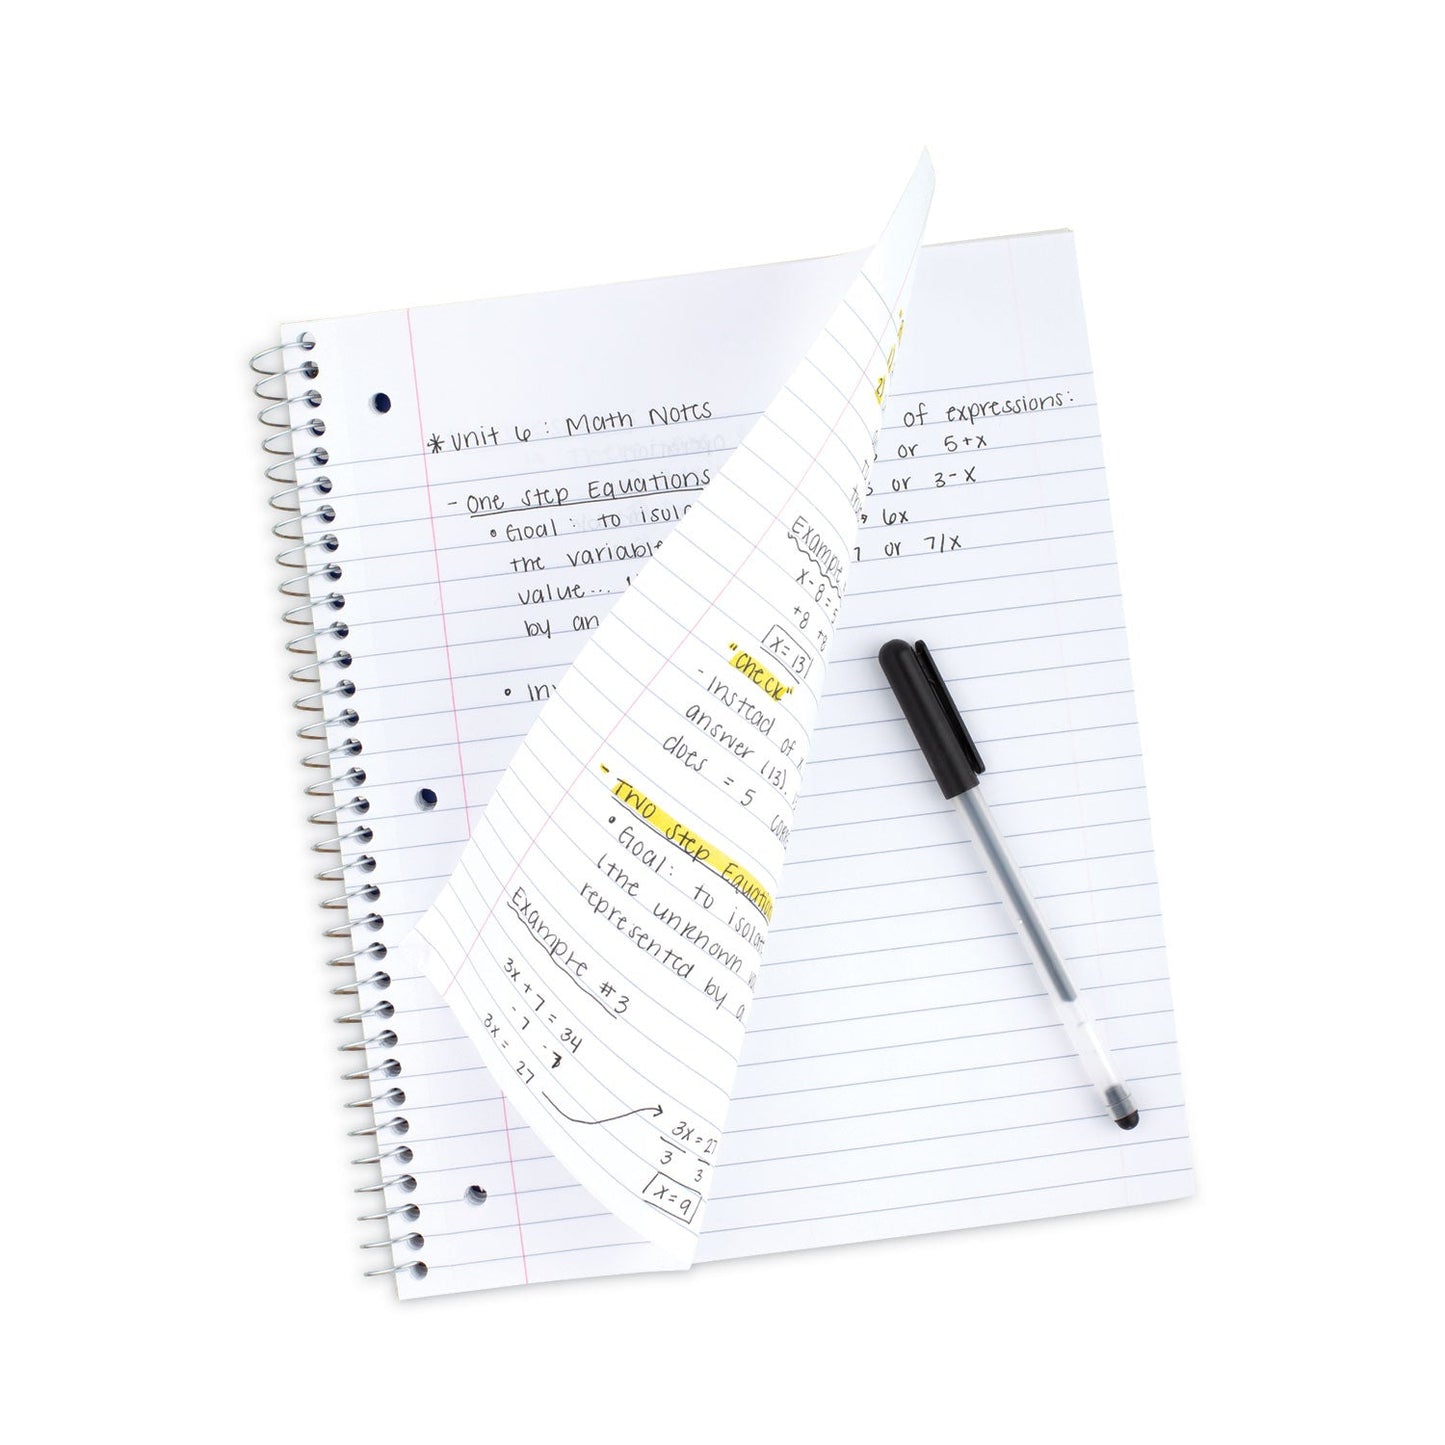 * Unit 6: Math Notes
- One Step Equations
• Goal: to
the
value...
by an
•
of expressions:
or 5+x
or 3-x
6x
or 7/x
Example
x-8=5
+8 +8
x=13
"check"
- Instead of
answer (13).
does = 5
- Two Step
• Goal: to
(the unknown
represented by a
Example #3
3x+7=34
-7 -7
3x = 27
3x=27
3 3
x=9